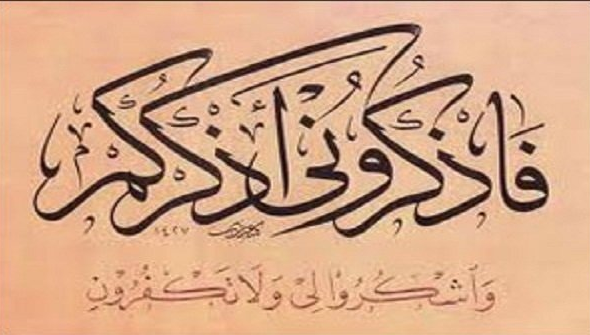 فَاذْكُرُونِي أَذْكُرْكُمْ
١٤٢٧
وَاشْكُرُوا لِي وَلَا تَكْفُرُونِ